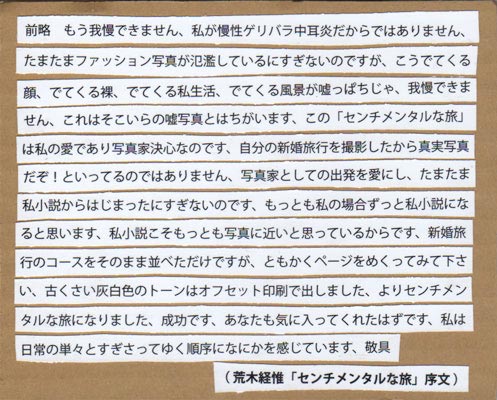 前略　もう我慢できません、私が慢性ゲリバラ中耳炎だからではありません、
たまたまファッション写真が氾濫しているにすぎないのですが、こうでてくる
顔、でてくる裸、でてくる私生活、でてくる風景が嘘っぱちじゃ、我慢できま
せん、これはそこいらの嘘写真とはちがいます、この「センチメンタルな旅」
は私の愛であり写真家決心なのです、自分の新婚旅行を撮影したから真実写真
だぞ！といってるのではありません、写真家としての出発を愛にし、たまたま
私小説からはじまったにすぎないのです、もっとも私の場合ずっと私小説にな
ると思います、私小説こそもっとも写真に近いと思っているからです、新婚旅
行のコースをそのまま並べただけですが、ともかくページをめくってみて下さ
い、古くさい灰白色のトーンはオフセット印刷で出しました、よりセンチメン
タルな旅になりました、成功です、あなたも気に入ってくれたはずです、私は
日常の単々とすぎさってゆく順序になにかを感じています、敬具
（荒木経惟「センチメンタルな旅」序文）